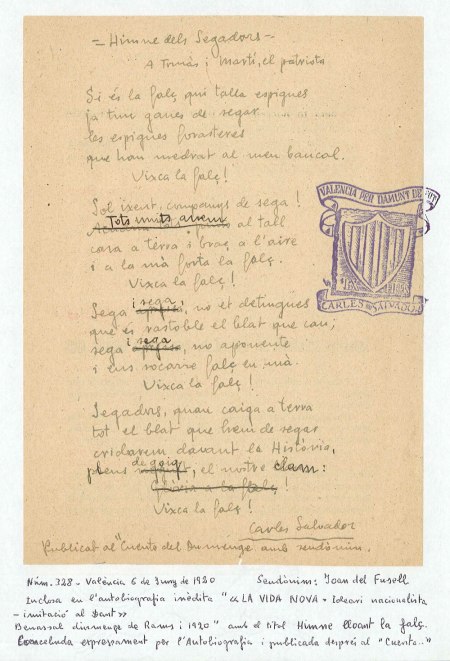 = Himne dels Segadors =
A Tomàs i Martí, el patriota
Si és la falç qui talla espigues
ja tinc ganes de segar
les espigues forasteres
que han medrat al meu bancal.
Vixca la falç!
Sol ixent, companys de sega!
Tots units anem al tall
cara a terra i braç a l'aire
i a la mà forta la falç.
Vixca la falç!
Sega i sega, no et detingues
que és rastoble el blat que cau;
sega i sega, no aponente
i ens socarre falç en mà.
Vixca la falç!
Segadors, quan caiga a terra
tot el blat que hem de segar
cridarem davant la Història,
plens de goig, el nostre clam:
glòria a la falç!
Vixca la falç!
Carles Salvador
Publicat al "Cuento del Dumenge" amb seudònim.
VALENCIA PER DAMUNT DE TOT
CARLES SALVADOR
Núm. 328 - València 6 de Juny de 1920 Seudònim: Joan del Fusell
Inclosa en l'autobiografia inèdita "«LA VIDA NOVA - Ideari nacionalista
- imitació al Dant»
Benassal diumenge de Rams i 1920" amb el títol Himne lloant la falç.
Concebuda expresament per l'Autobiografia i publicada després al "Cuento.."